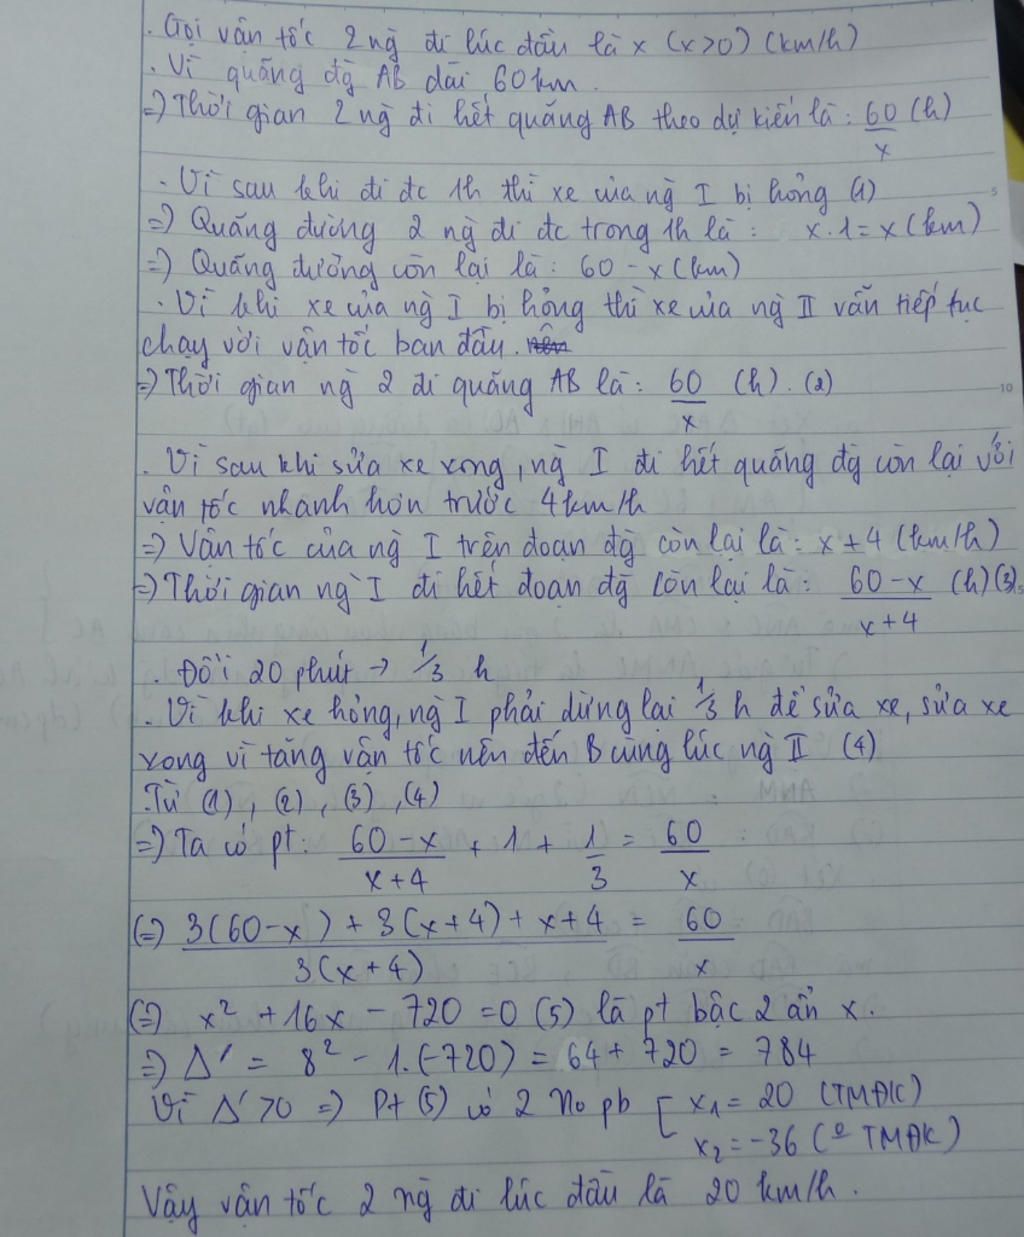 . Gọi vận tốc 2 ng̀ đi lúc đầu là x (x>0) (km/h)
. Vì quãng đg̀ AB dài 60km.
=> Thời gian 2 ng̀ đi hết quãng AB theo dự kiến là: 60/x (h)
. Vì sau khi đi đc 1h thì xe của ng̀ I bị hỏng (1)
=> Quãng đường 2 ng̀ đi đc trong 1h là: x.1=x (km)
=> Quãng đường còn lại là: 60-x (km)
. Vì khi xe của ng̀ I bị hỏng thì xe của ng̀ II vẫn tiếp tục
chạy với vận tốc ban đầu.
=> Thời gian ng̀ 2 đi quãng AB là: 60/x (h). (2)
. Vì sau khi sửa xe xong, ng̀ I đi hết quãng đg̀ còn lại với
vận tốc nhanh hơn trước 4km/h
=> Vận tốc của ng̀ I trên đoạn đg̀ còn lại là: x+4 (km/h)
=> Thời gian ng̀ I đi hết đoạn đg̀ còn lại là: (60-x)/(x+4) (h) (3)
. Đổi 20 phút → 1/3 h
. Vì khi xe hỏng, ng̀ I phải dừng lại 1/3 h để sửa xe, sửa xe
xong vì tăng vận tốc nên đến B cùng lúc ng̀ II (4)
. Từ (1), (2), (3), (4)
=> Ta có pt: (60-x)/(x+4) + 1 + 1/3 = 60/x
(=) (3(60-x) + 3(x+4) + x+4)/(3(x+4)) = 60/x
(=) x² + 16x - 720 = 0 (5) là pt bậc 2 ẩn x.
=> Δ' = 8² - 1.(-720) = 64 + 720 = 784
Vì Δ' >0 => Pt (5) có 2 no pb [ x₁ = 20 (TMĐK)
x₂ = -36 (º TMĐK)
Vậy vận tốc 2 ng̀ đi lúc đầu là 20 km/h.